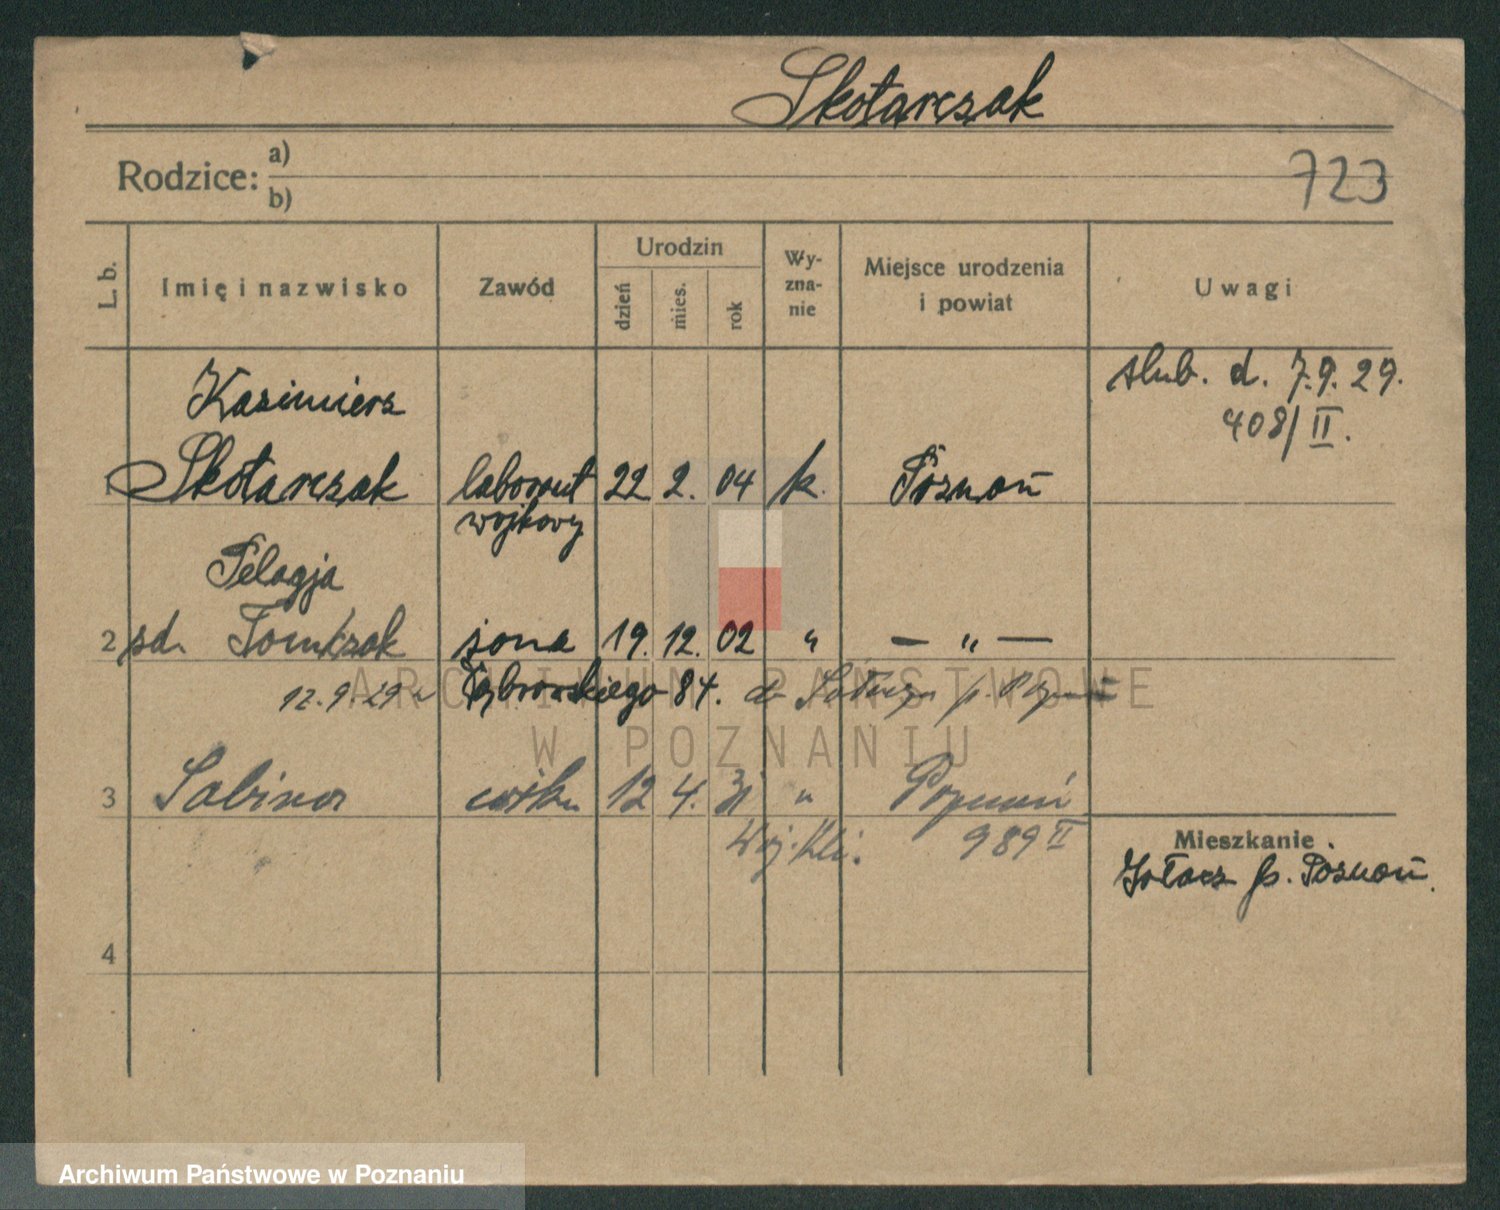 Skotarczak
Rodzice: a)
b)
723
L. b. Imię i nazwisko Zawód Urodzin dzień mies. rok Wy-zna-nie Miejsce urodzenia i powiat Uwagi
Kazimierz
ślub. d. 7.9.29.
408/II.
1 Skotarczak laborant 22 2. 04 k. Poznań
wojskowy
Pelagja
2 Tomczak żona 19. 12. 02 " — " —
12.9.29 Dąbrowskiego 84. do
ARCHIWUM PAŃSTWOWE
W POZNANIU
3 Sabina córka 12 4. 31 " Poznań
989 II
Mieszkanie.
p. Poznań.
4
Archiwum Państwowe w Poznaniu